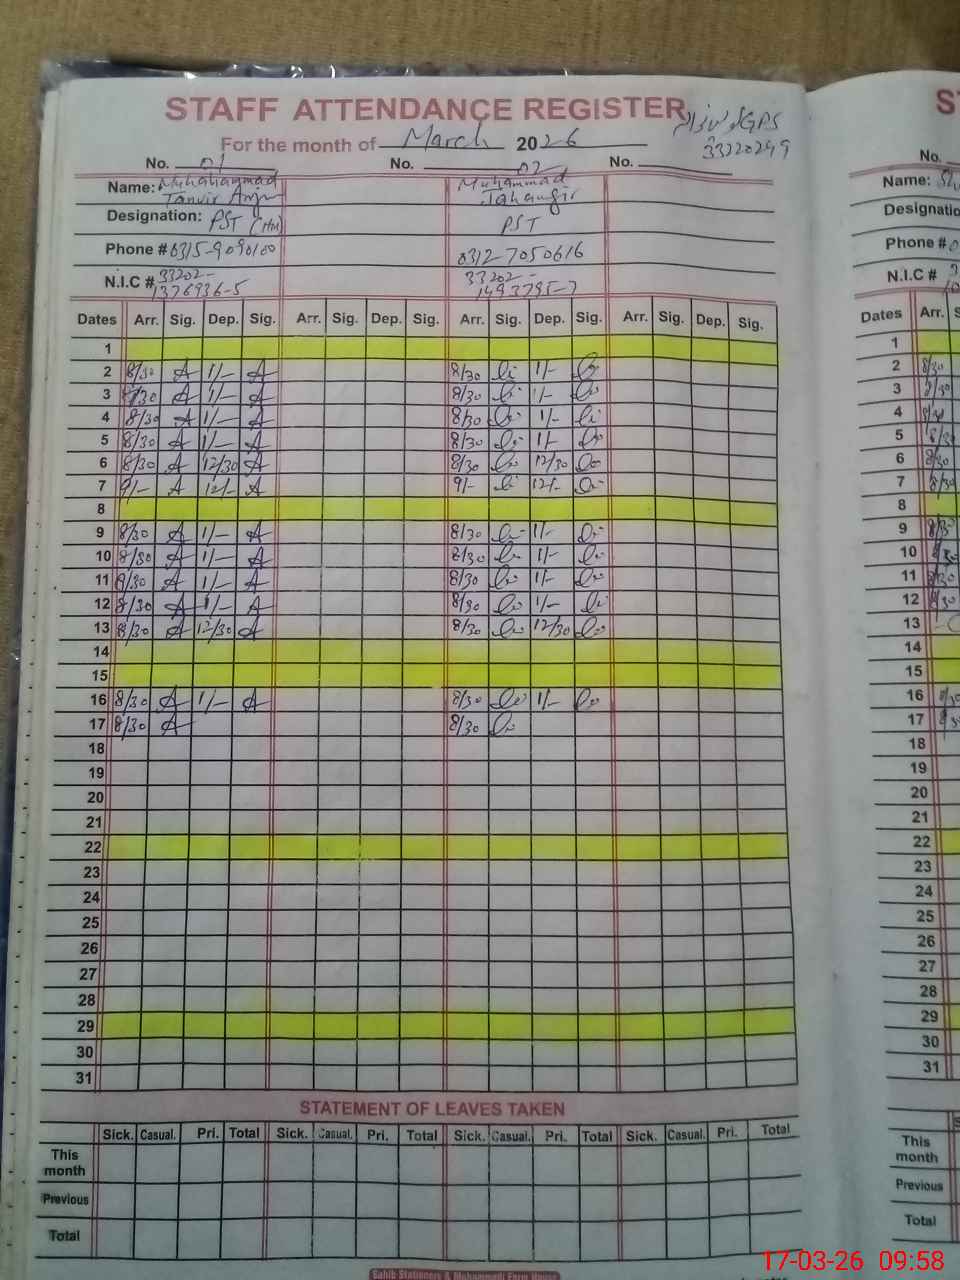 STAFF ATTENDANCE REGISTER
GPS
For the month of March 2026
33220249
No. 01 No. 02 No.
Name: Muhahammad Tanvir Anjum Muhammad Jahangir
Designation: PST (HM) PST
Phone # 0315-9090100 0312-7050616
N.I.C # 33202-1376936-5 33202-1493795-7
Dates Arr. Sig. Dep. Sig. Arr. Sig. Dep. Sig. Arr. Sig. Dep. Sig. Arr. Sig. Dep. Sig.
1
2 8/30 A 1/- A 8/30 1/-
3 8/30 A 1/- A 8/30 1/-
4 8/30 A 1/- A 8/30 1/-
5 8/30 A 1/- A 8/30 1/-
6 8/30 A 12/30 A 8/30 12/30
7 9/- A 12/- A 9/- 12/-
8
9 8/30 A 1/- A 8/30 1/-
10 8/30 A 1/- A 8/30 1/-
11 8/30 A 1/- A 8/30 1/-
12 8/30 A 1/- A 8/30 1/-
13 8/30 A 12/30 A 8/30 12/30
14
15
16 8/30 A 1/- A 8/30 1/-
17 8/30 A 8/30
18
19
20
21
22
23
24
25
26
27
28
29
30
31
STATEMENT OF LEAVES TAKEN
Sick. Casual. Pri. Total Sick. Casual. Pri. Total Sick. Casual. Pri. Total Sick. Casual. Pri. Total
This month
Previous
Total
No.
Name:
Designatio
Phone #
N.I.C #
Dates Arr.
1
2 8/30
3 8/30
4 8/30
5 8/30
6 8/30
7 8/30
8
9 8/30
10 8/30
11 8/30
12 8/30
13
14
15
16 8/30
17 8/30
18
19
20
21
22
23
24
25
26
27
28
29
30
31
This month
Previous
Total
17-03-26 09:58